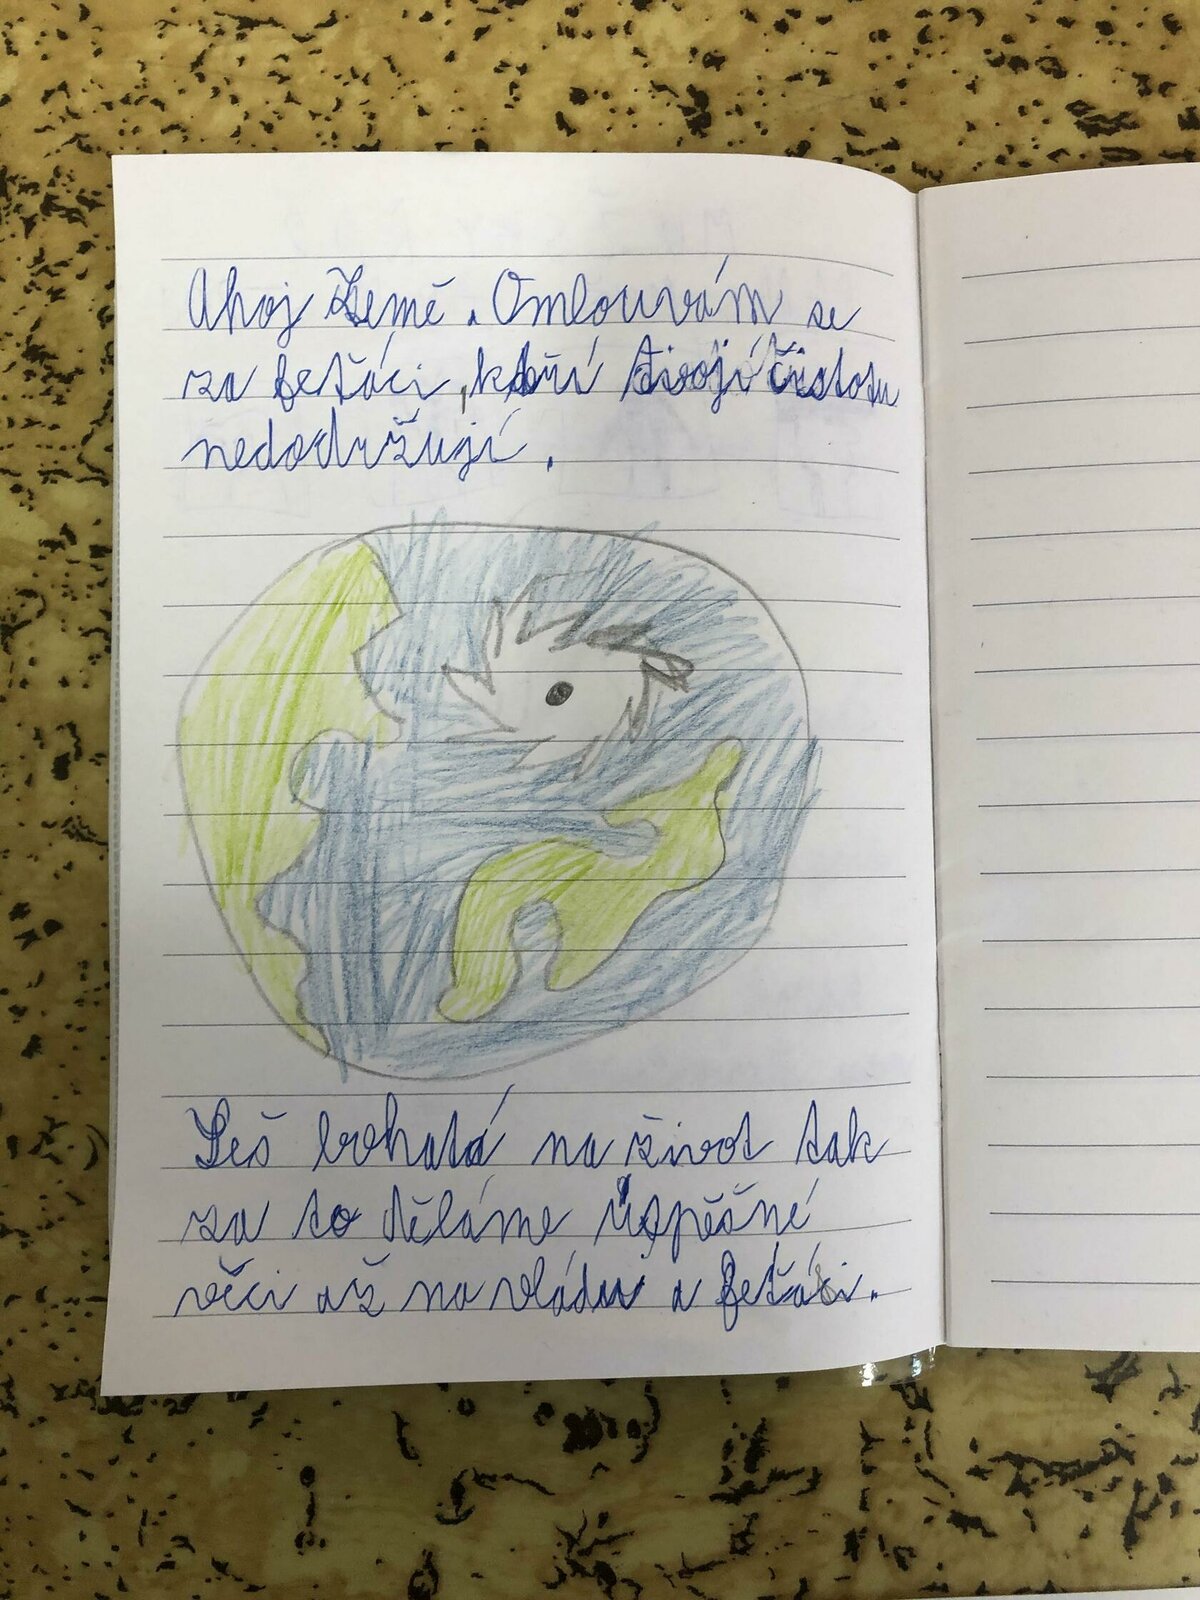 Ahoj Země. Omlouvám se
za feťáci, kteří tvojí čistotu
nedodržují.
Seš bohatá na život tak
za to děláme úspěšné
věci až na vládu a feťáci.